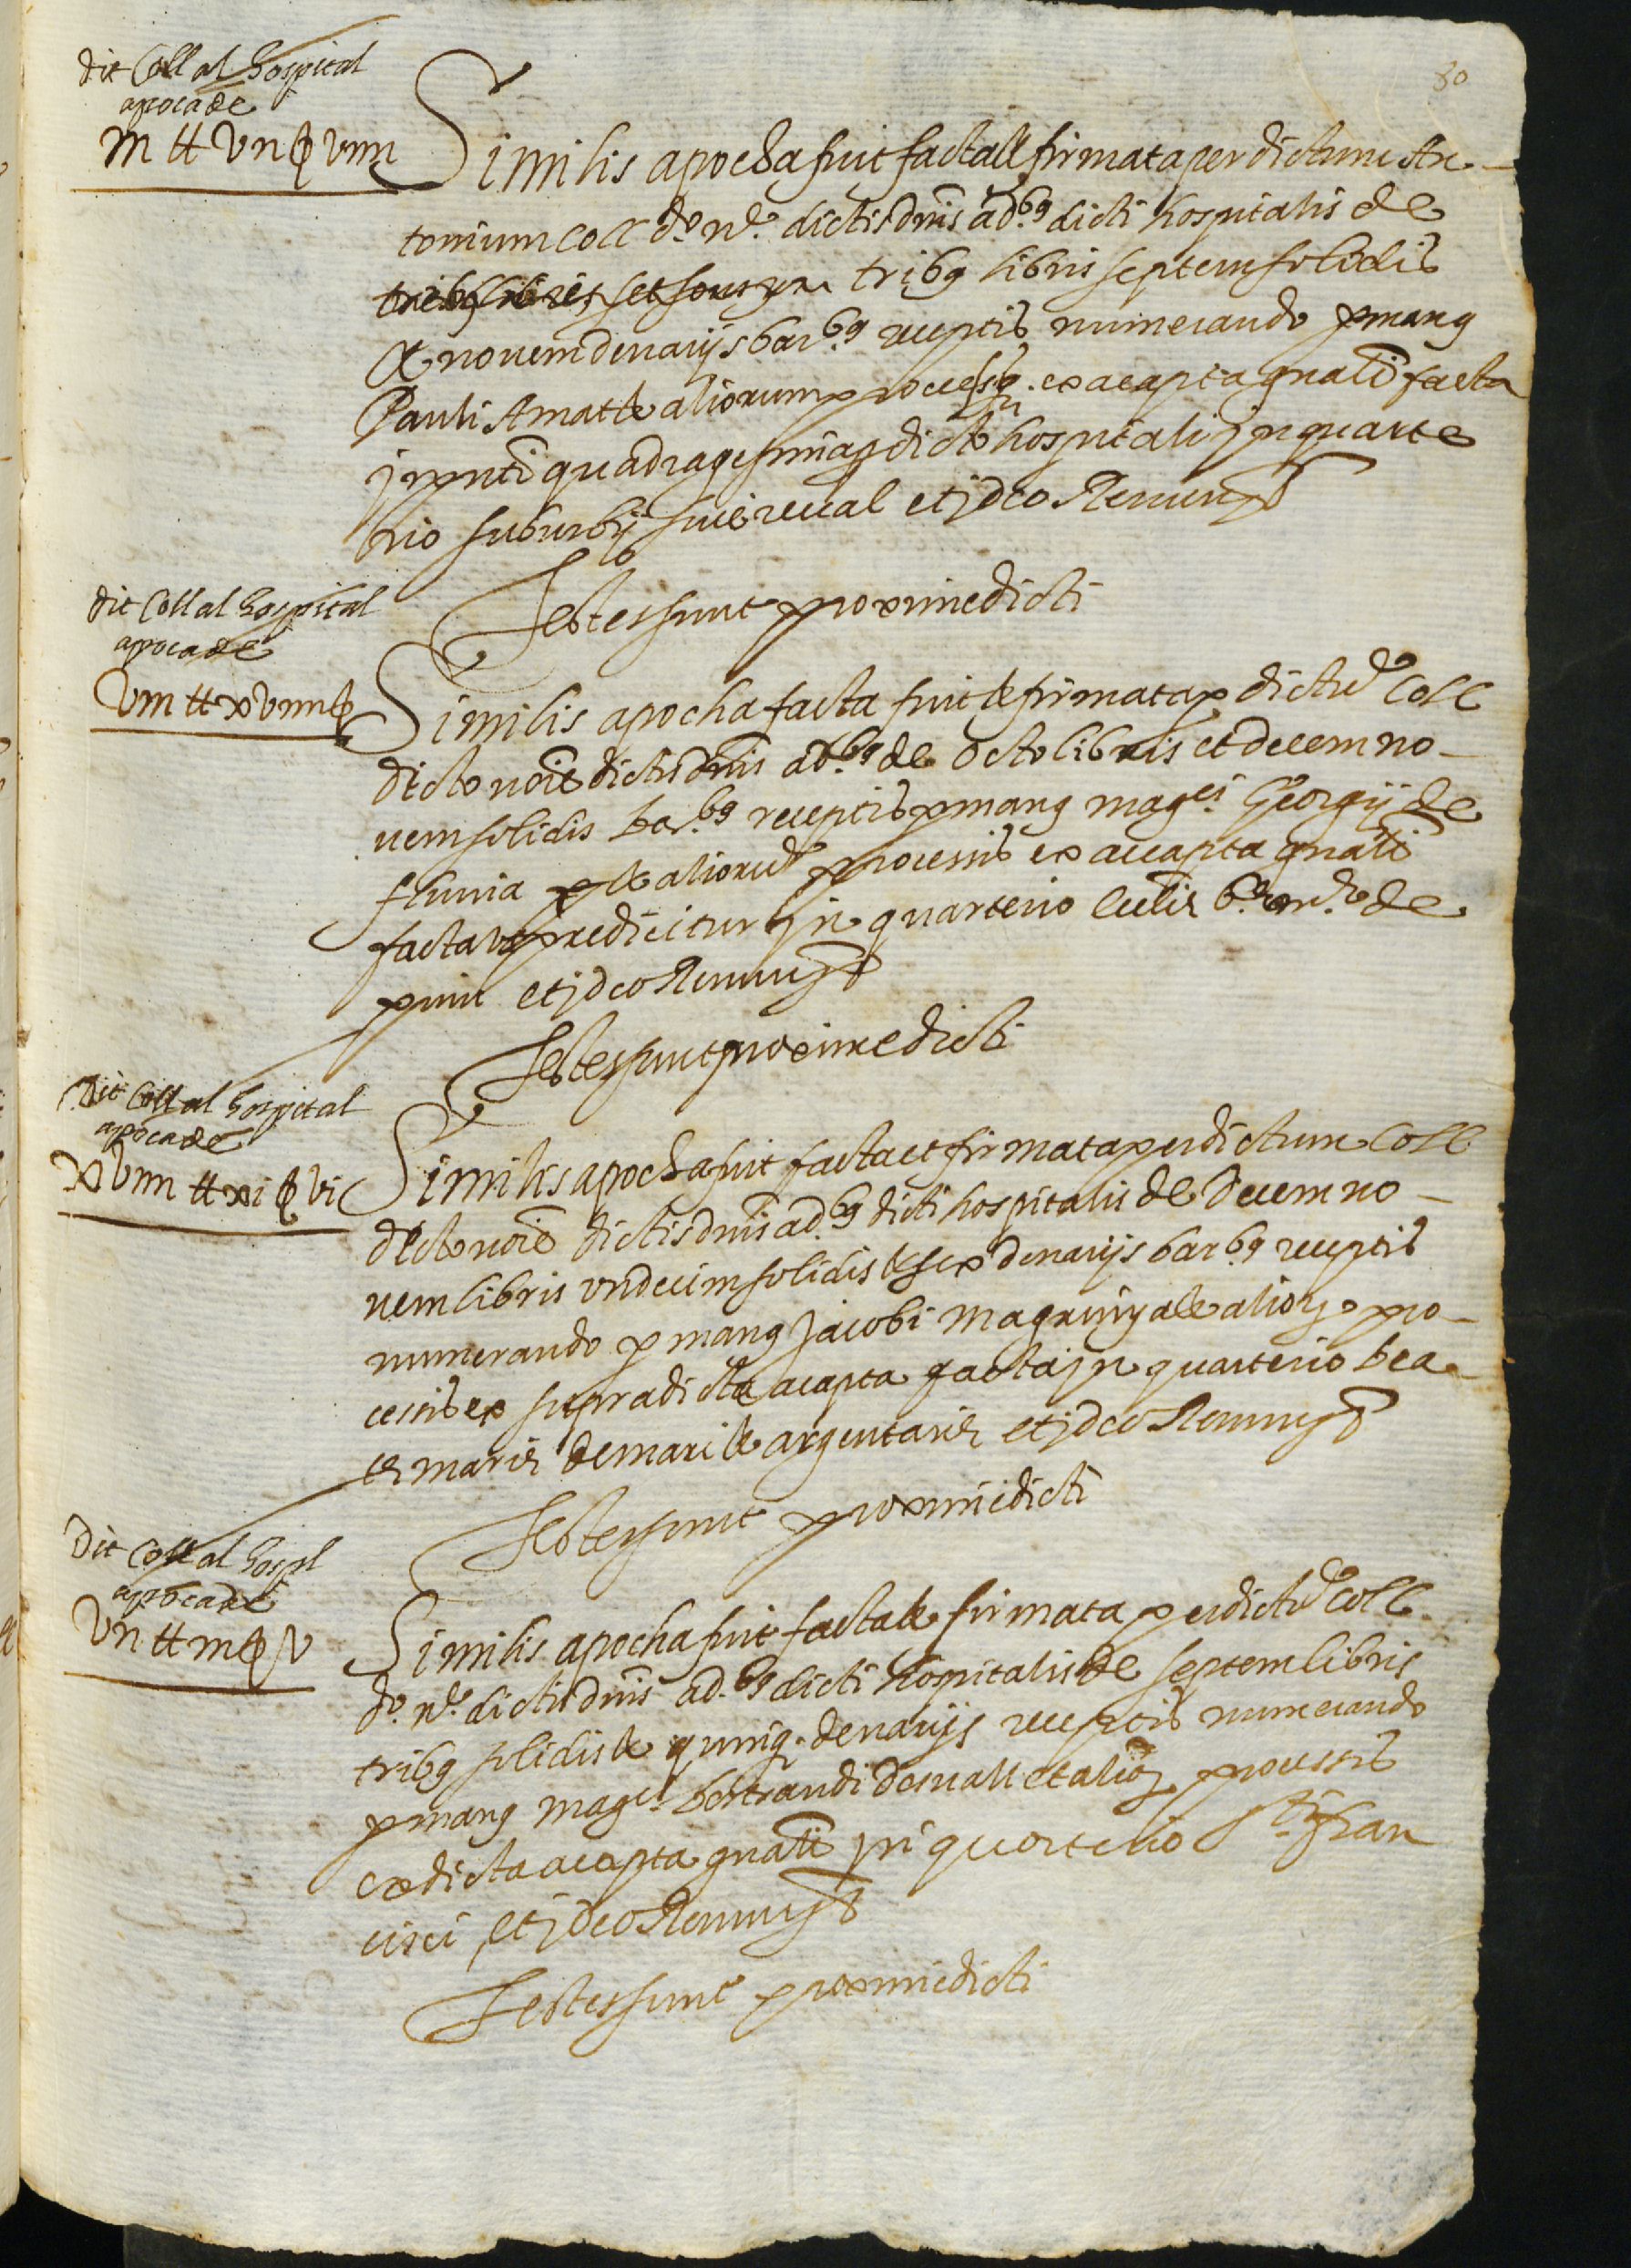 30
dit Coll al hospital
apoca de
iii ll vii s viiii
Similis apocha fuit facta et firmata per dictum An-
tonium Coll do. ne. dictis dnis ad.bus dicti hospitalis de
tribus libris septem solidis
et novem denarijs bar.bus receptis numerando p manus
Pauli Amat et aliorum processis ex acapta gnali facta
in pnti quadragesima p dicto hospitali in quarte
rio suburbij sive raval et jdeo Renun
Testes sunt proxime dicti
dit Coll al hospital
apoca de
viii ll xviiii s
Similis apocha facta fuit et firmata p dictu Coll
dicto noie dictis dnis ad.bus de octo libris et decem no-
vem solidis bar.bus receptis p manus mag.ci Georgij de
fluvia et aliorum processis ex accapta gnali
facta ut predicitur in quarterio eccl.
pini et jdeo Renun
Testes sunt proxime dicti
Dit Coll al hospital
apoca de
xviiii ll xi s vi
Similis apocha fuit facta et firmata per dictum Coll
dicto noie dictis dnis ad.bus dicti hospitalis de decem no-
vem libris undecim solidis et sex denarijs bar.bus receptis
numerando p manus Jacobi Magrinya et alioru pro-
cessis ex supradicta acapta facta in quarterio bea-
te marie de mari et argentarie et jdeo Renun
Testes sunt proxime dicti
Dit Coll al hospl
apoca de
vii ll iii s v
Similis apocha fuit facta et firmata per dictu Coll
do. ne. dictis dnis ad.bus dicti hospitalis de septem libris
tribus solidis et quinq. denarijs receptis numerando
p manus mag.ci bertrandi desvall et alioru processis
ex dicta acapta gnali in quarterio S.ti fran
cisci et jdeo Renun
Testes sunt proxime dicti